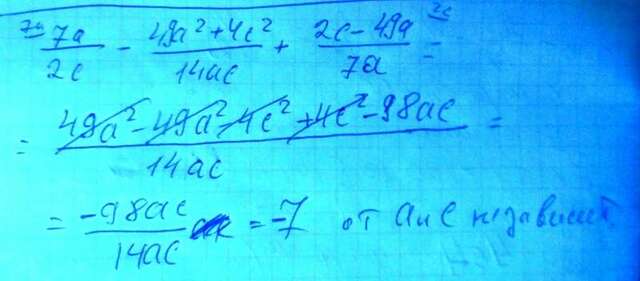 7a 7a/2c - (49a²+4c²)/14ac + (2c-49a)/7a 2c =
= (49a² - 49a² - 4c² + 4c² - 98ac)/14ac =
= -98ac/14ac = -7 от a и c независит